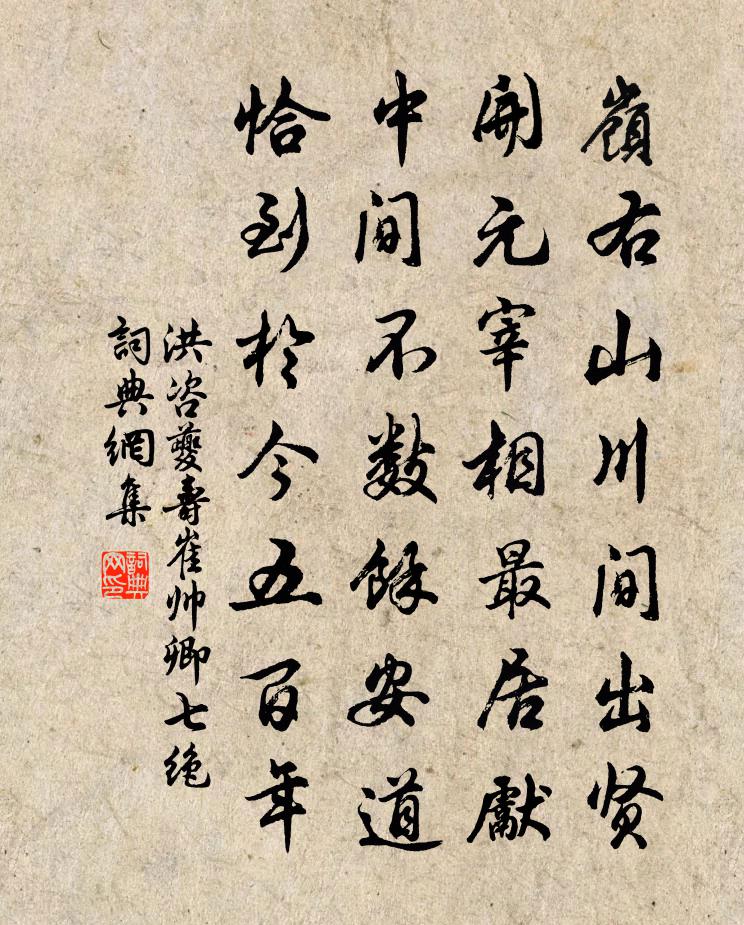 嶺右山川间出贤
開元宰相最居獻
中间不数餘安道
恰到於今五百年
洪咨夔壽崔帅卿七绝
詞典網集
詞典网印